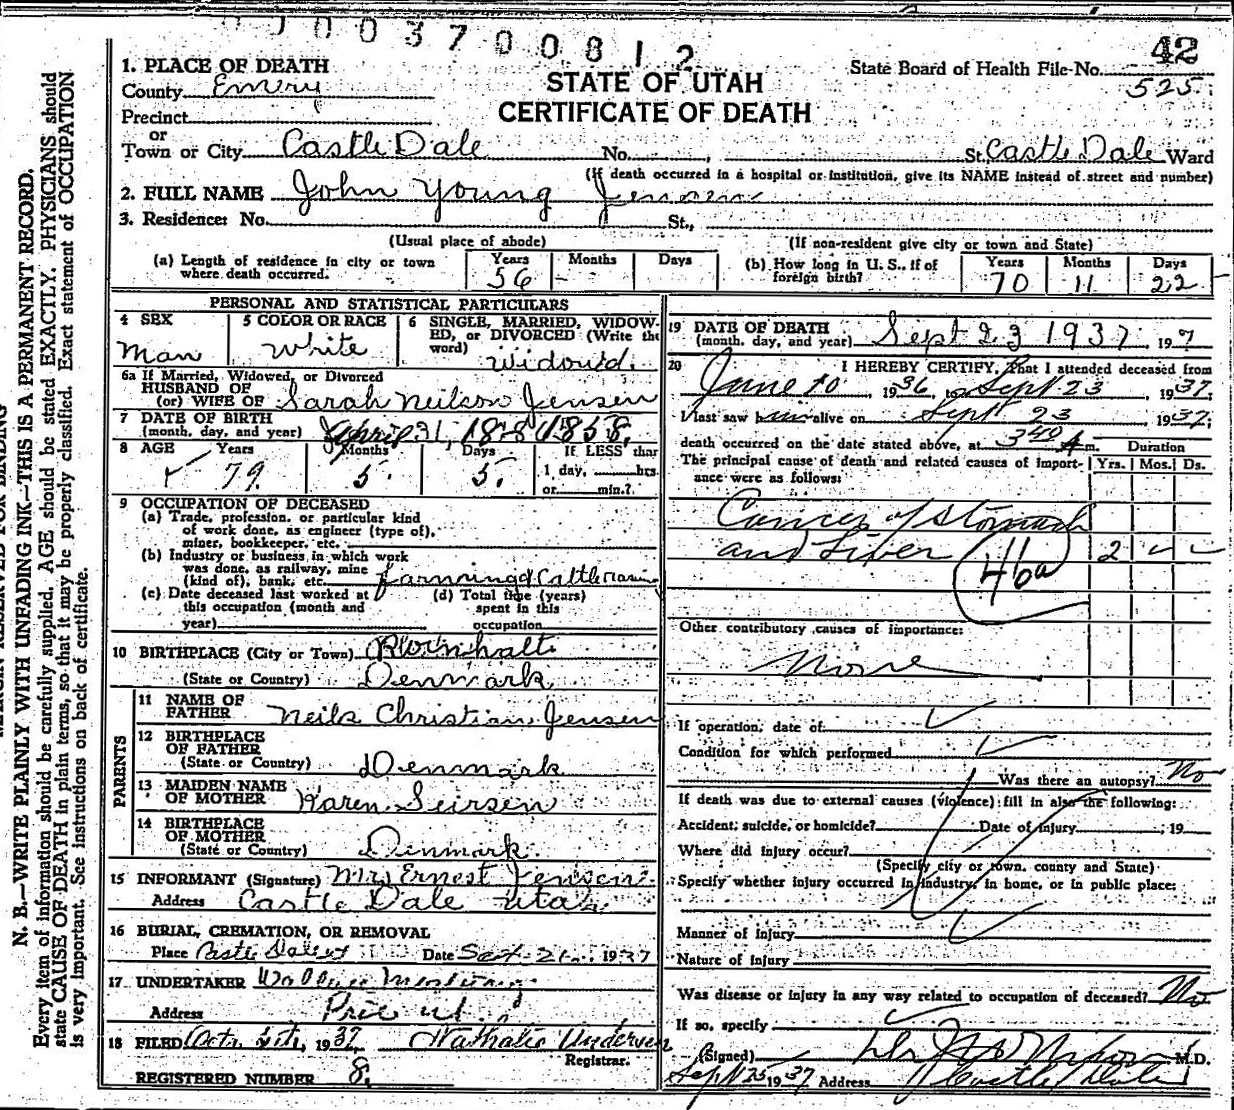 0003700812
42
1. PLACE OF DEATH
STATE OF UTAH
State Board of Health File No. 525
County Emery
CERTIFICATE OF DEATH
Precinct
or
Town or City Castle Dale No. , St. Castle Dale Ward
(If death occurred in a hospital or institution, give its NAME instead of street and number)
2. FULL NAME John Young Jensen
3. Residence: No. St.,
(Usual place of abode) (If non-resident give city or town and State)
(a) Length of residence in city or town where death occurred. Years 56 Months - Days
(b) How long in U. S., if of foreign birth? Years 70 Months 11 Days 22
PERSONAL AND STATISTICAL PARTICULARS
4 SEX Man
5 COLOR OR RACE White
6 SINGLE, MARRIED, WIDOWED, or DIVORCED (Write the word) Widowd.
6a If Married, Widowed, or Divorced
HUSBAND OF
(or) WIFE OF Sarah Neilson Jensen
7 DATE OF BIRTH
(month, day, and year) April 1858
8 AGE Years 79 Months 5 Days 5 If LESS than
1 day, hrs.
or min.?
9 OCCUPATION OF DECEASED
(a) Trade, profession, or particular kind
of work done, as engineer (type of),
miner, bookkeeper, etc.
(b) Industry or business in which work
was done, as railway, mine
(kind of), bank, etc. Farming & Cattle
(c) Date deceased last worked at
this occupation (month and
year)
(d) Total time (years)
spent in this
occupation
10 BIRTHPLACE (City or Town)
(State or Country) Denmark
PARENTS
11 NAME OF
FATHER Neils Christian Jensen
12 BIRTHPLACE
OF FATHER
(State or Country) Denmark
13 MAIDEN NAME
OF MOTHER Karen Seirsen
14 BIRTHPLACE
OF MOTHER
(State or Country) Denmark.
15 INFORMANT (Signature) Mrs Ernest Jensen
Address Castle Dale Utah
16 BURIAL, CREMATION, OR REMOVAL
Place Castle Dale Date Sept. 1937
17 UNDERTAKER Wallace
Address Price Ut.
18 FILED Oct. 1937 Nathalia Andersen
Registrar.
REGISTERED NUMBER 8.
19 DATE OF DEATH
(month, day, and year) Sept 23 1937, 1937
20 I HEREBY CERTIFY, That I attended deceased from
June 10, 1936, to Sept 23 1937.
I last saw him alive on Sept 23 1937;
death occurred on the date stated above, at 3 40 A m. Duration
The principal cause of death and related causes of importance were as follows: Yrs. Mos. Ds.
Cancer of Stomach
and Liver 2 - -
46a
Other contributory causes of importance:
None
If operation, date of
Condition for which performed
Was there an autopsy? No
If death was due to external causes (violence) fill in also the following:
Accident, suicide, or homicide? Date of injury , 19
Where did injury occur?
(Specify city or town, county and State)
Specify whether injury occurred in industry, in home, or in public place:
Manner of injury
Nature of injury
Was disease or injury in any way related to occupation of deceased? No
If so, specify
(Signed) Nixon M.D.
Sept 25 1937 Address Castle Dale
N. B.—WRITE PLAINLY WITH UNFADING INK—THIS IS A PERMANENT RECORD.
Every item of information should be carefully supplied. AGE should be stated EXACTLY. PHYSICIANS should
state CAUSE OF DEATH in plain terms, so that it may be properly classified. Exact statement of OCCUPATION
is very important. See instructions on back of certificate.